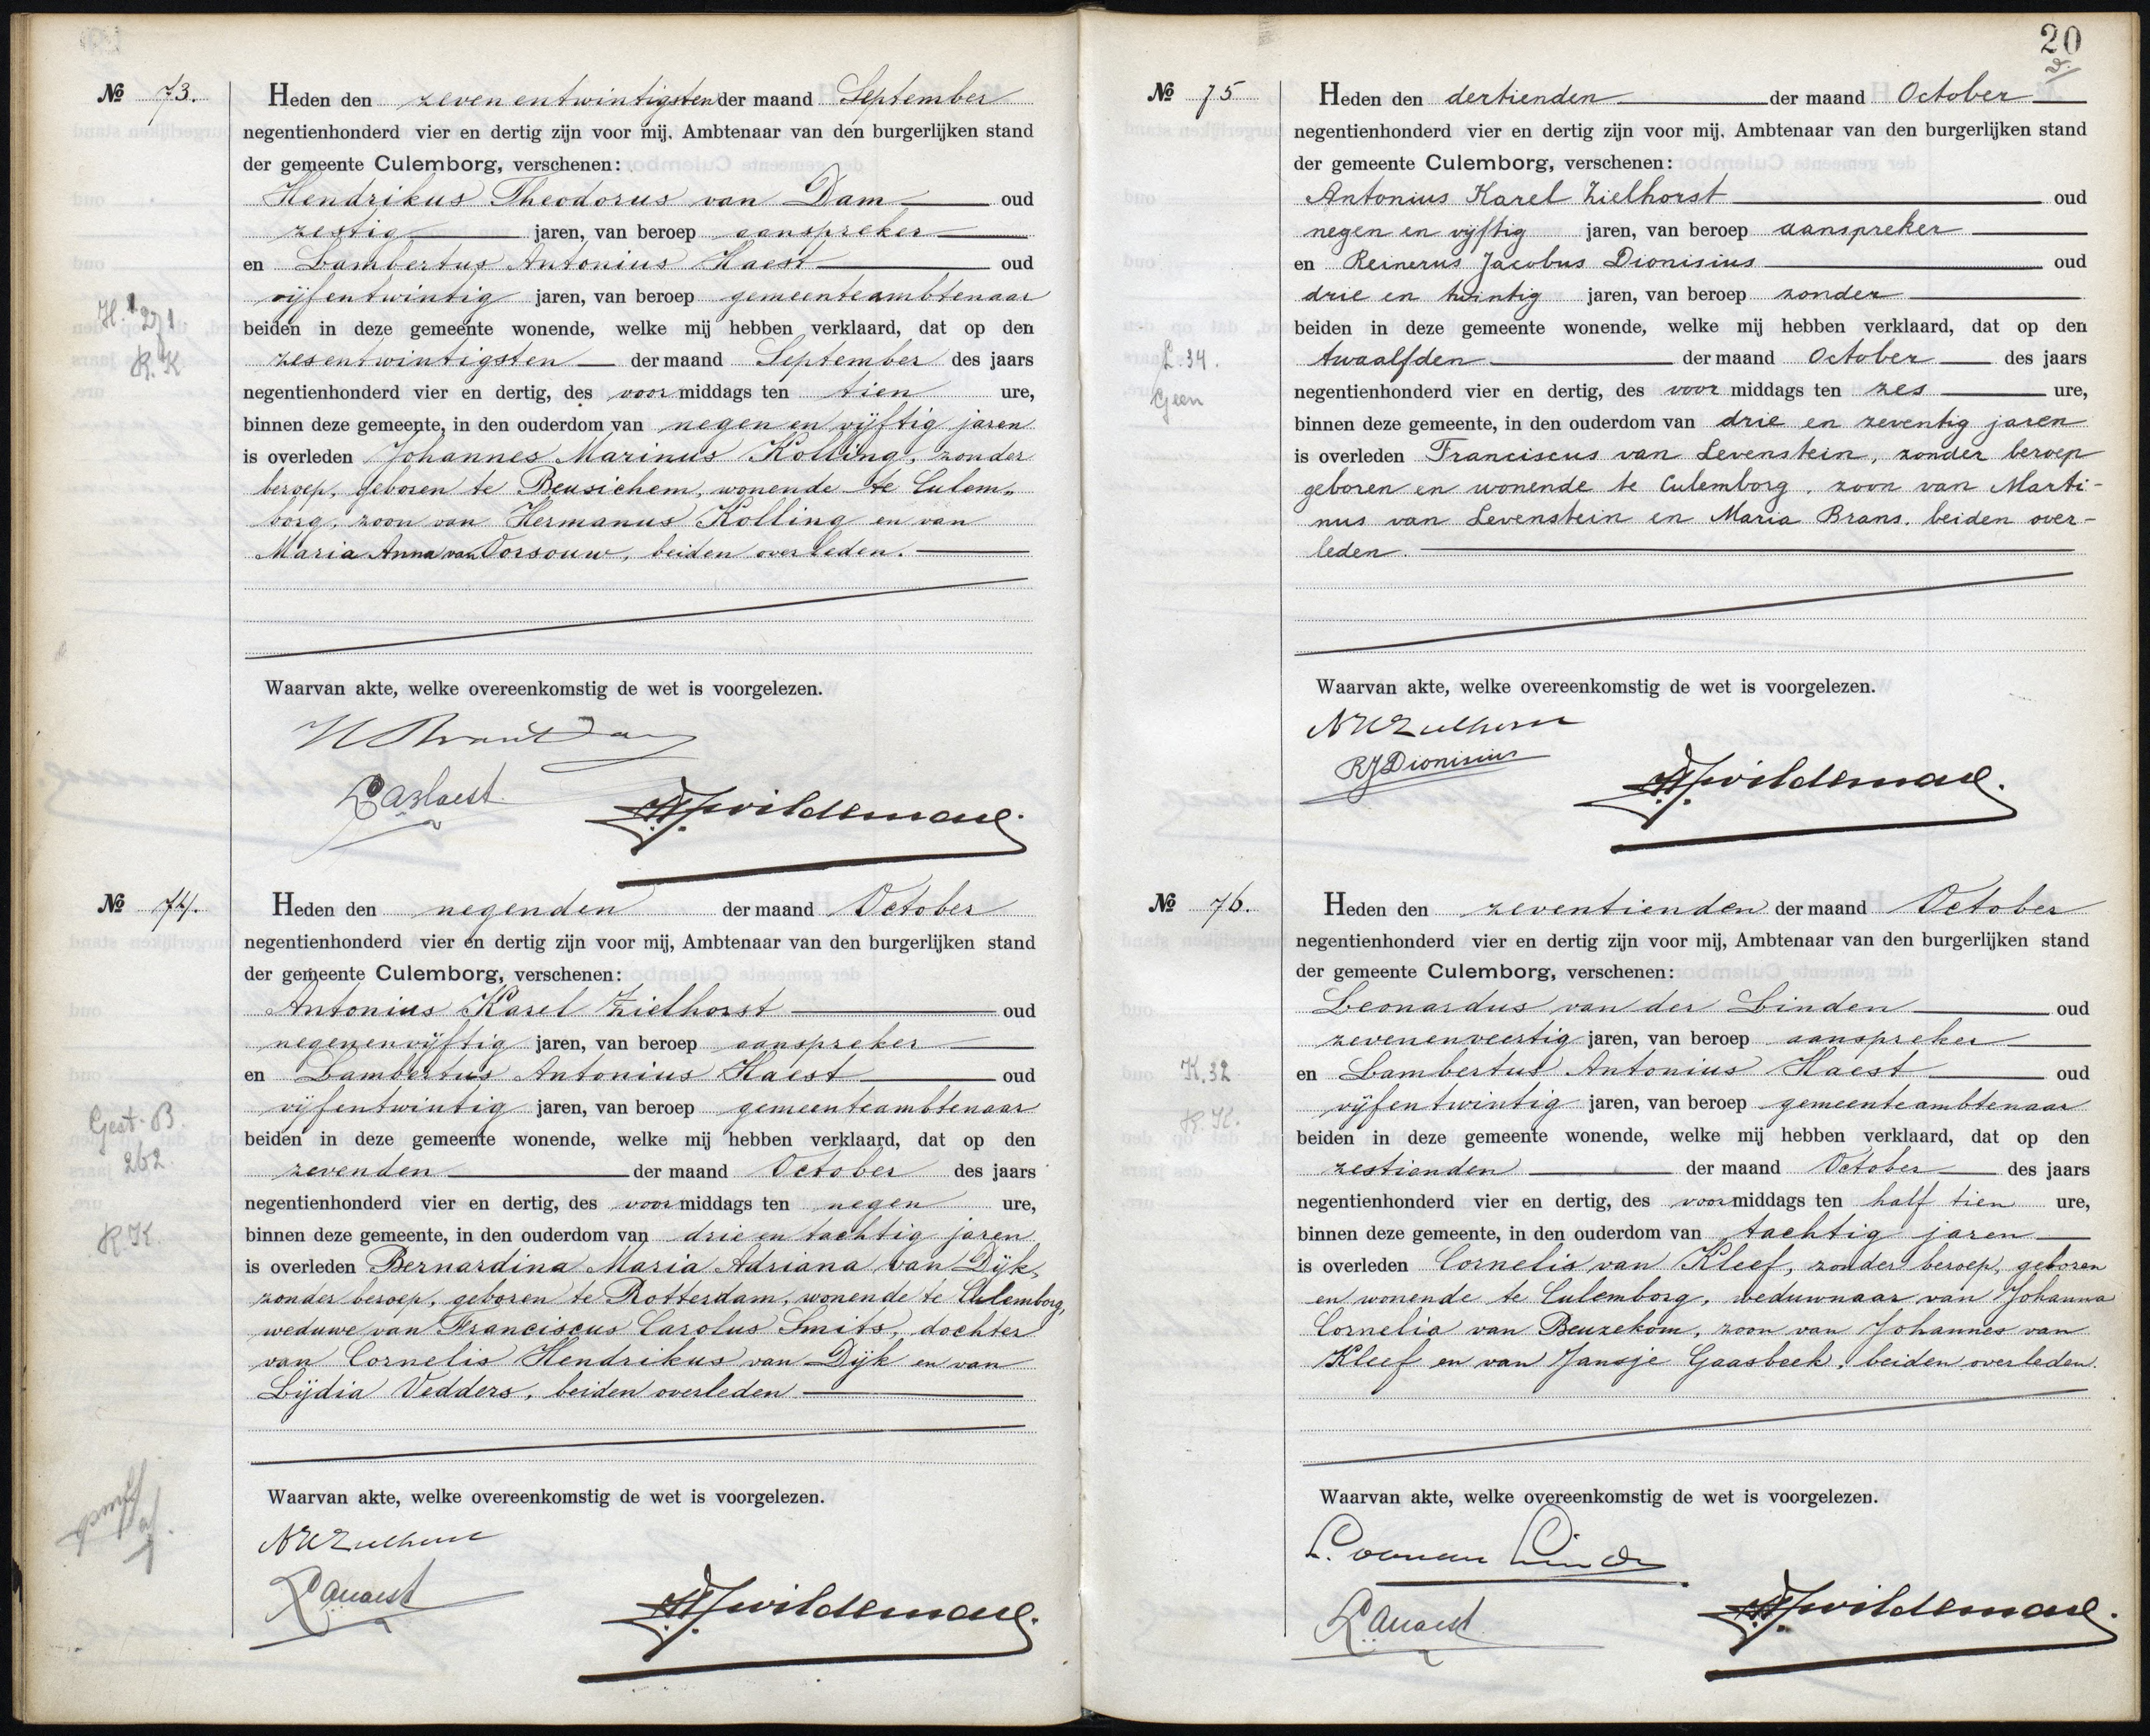 № 73.
Heden den zevenentwintigsten der maand September
negentienhonderd vier en dertig zijn voor mij, Ambtenaar van den burgerlijken stand
der gemeente Culemborg, verschenen:
Hendrikus Theodorus van Dam oud
zestig jaren, van beroep aanspreker
en Lambertus Antonius Haest oud
vijfentwintig jaren, van beroep gemeenteambtenaar
beiden in deze gemeente wonende, welke mij hebben verklaard, dat op den
zesentwintigsten der maand September des jaars
negentienhonderd vier en dertig, des voormiddags ten tien ure,
binnen deze gemeente, in den ouderdom van negen en vijftig jaren
is overleden Johannes Marinus Kolling, zonder
beroep, geboren te Beusichem, wonende te Culem-
borg, zoon van Hermanus Kolling en van
Maria Anna van Vorsouw, beiden overleden.
H. 271
R.K
Waarvan akte, welke overeenkomstig de wet is voorgelezen.
LAHaest
Wildeman
№ 74.
Heden den negenden der maand October
negentienhonderd vier en dertig zijn voor mij, Ambtenaar van den burgerlijken stand
der gemeente Culemborg, verschenen:
Antonius Karel Zielhorst oud
negenenvijftig jaren, van beroep aanspreker
en Lambertus Antonius Haest oud
vijfentwintig jaren, van beroep gemeenteambtenaar
beiden in deze gemeente wonende, welke mij hebben verklaard, dat op den
zevenden der maand October des jaars
negentienhonderd vier en dertig, des voormiddags ten negen ure,
binnen deze gemeente, in den ouderdom van drie en tachtig jaren
is overleden Bernardina Maria Adriana van Dijk,
zonder beroep, geboren te Rotterdam, wonende te Culemborg,
weduwe van Franciscus Carolus Smits, dochter
van Cornelis Hendrikus van Dijk en van
Lijdia Vedders, beiden overleden
Gest. B.
262.
R.K.
Waarvan akte, welke overeenkomstig de wet is voorgelezen.
AKZielhorst
LAHaest
Wildeman
20
№ 75
Heden den dertienden der maand October
negentienhonderd vier en dertig zijn voor mij, Ambtenaar van den burgerlijken stand
der gemeente Culemborg, verschenen:
Antonius Karel Zielhorst oud
negen en vijftig jaren, van beroep aanspreker
en Reinerus Jacobus Dionisius oud
drie en twintig jaren, van beroep zonder
beiden in deze gemeente wonende, welke mij hebben verklaard, dat op den
twaalfden der maand October des jaars
negentienhonderd vier en dertig, des voor middags ten zes ure,
binnen deze gemeente, in den ouderdom van drie en zeventig jaren
is overleden Franciscus van Levenstein, zonder beroep
geboren en wonende te Culemborg, zoon van Marti-
nus van Levenstein en Maria Brans, beiden over-
leden.
L.34.
Geen
Waarvan akte, welke overeenkomstig de wet is voorgelezen.
AKZielhorst
RJDionisius
Wildeman
№ 76.
Heden den zeventienden der maand October
negentienhonderd vier en dertig zijn voor mij, Ambtenaar van den burgerlijken stand
der gemeente Culemborg, verschenen:
Leonardus van der Linden oud
zevenenveertig jaren, van beroep aanspreker
en Lambertus Antonius Haest oud
vijfentwintig jaren, van beroep gemeenteambtenaar
beiden in deze gemeente wonende, welke mij hebben verklaard, dat op den
zestienden der maand October des jaars
negentienhonderd vier en dertig, des voormiddags ten half tien ure,
binnen deze gemeente, in den ouderdom van tachtig jaren
is overleden Cornelis van Kleef, zonder beroep, geboren
en wonende te Culemborg, weduwnaar van Johanna
Cornelia van Beuzekom, zoon van Johannes van
Kleef en van Jansje Gaasbeek, beiden overleden.
K.32
R.K.
Waarvan akte, welke overeenkomstig de wet is voorgelezen.
LAHaest
Wildeman